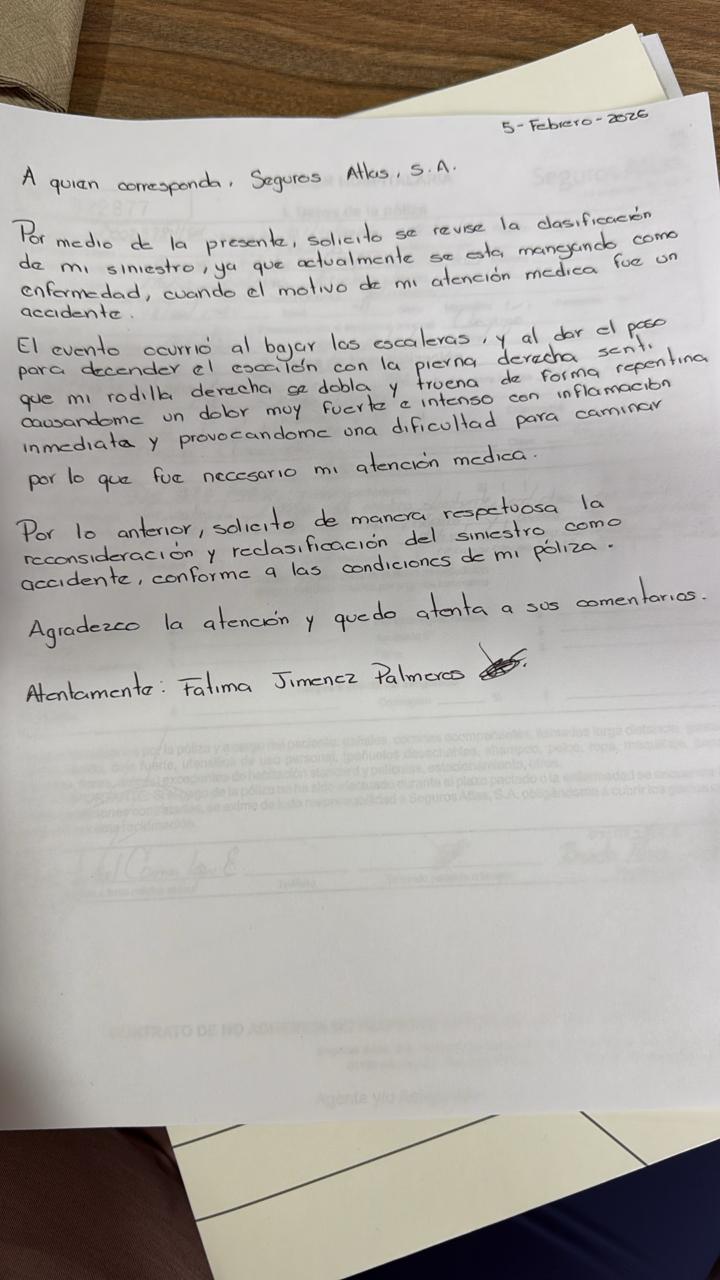 5-Febrero-2026
A quien corresponda, Seguros Atlas, S.A.
Por medio de la presente, solicito se revise la clasificación
de mi siniestro, ya que actualmente se esta manejando como
enfermedad, cuando el motivo de mi atención medica fue un
accidente.
El evento ocurrió al bajar las escaleras, y al dar el paso
para decender el escalón con la pierna derecha senti
que mi rodilla derecha se dobla y truena de forma repentina
causandome un dolor muy fuerte e intenso con inflamación
inmediata y provocandome una dificultad para caminar
por lo que fue necesario mi atención medica.
Por lo anterior, solicito de manera respetuosa la
reconsideración y reclasificación del siniestro como
accidente, conforme a las condiciones de mi póliza.
Agradezco la atención y quedo atenta a sus comentarios.
Atentamente: Fatima Jimenez Palmeros